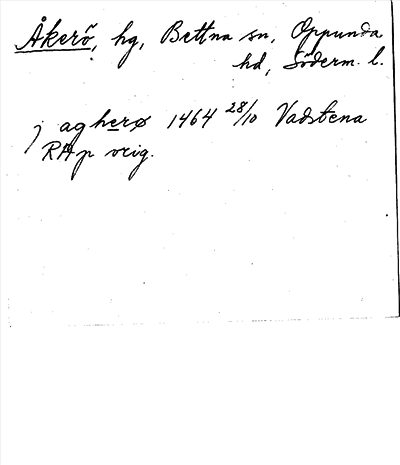 Åkerö, hg, Bettna sn, Oppunda
hd, Söderm. l.
j agherø 1464 28/10 Vadstena
RAp orig.